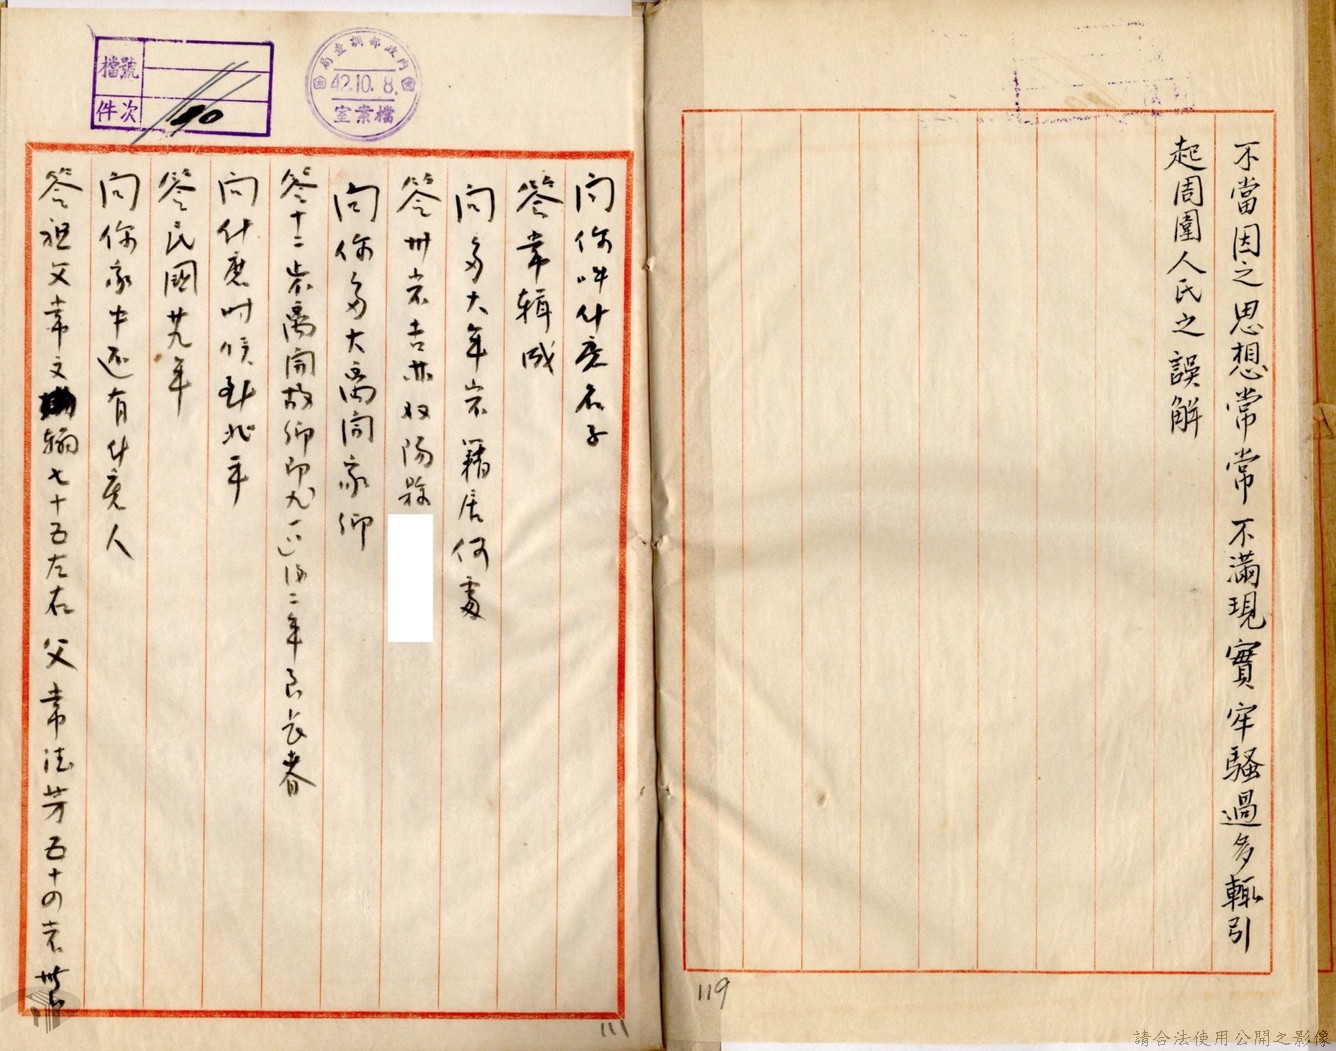 不當因之思想常常不滿現實牢騷過多輒引
起周圍人民之誤解
119
檔號
件次
90
內政部調查局
42.10.8.
檔案室
問你叫什麽名子
答常輯成
問多大年岁籍居何處
答卅岁吉林双陽縣
問你多大離開家鄉
答十二岁離開故鄉即九一八後二年到长春
問什麽时候到北平
答民國廿九年
問你家中还有什麽人
答祖父常文翰七十五左右父常法芳五十四岁
111
請合法使用公開之影像